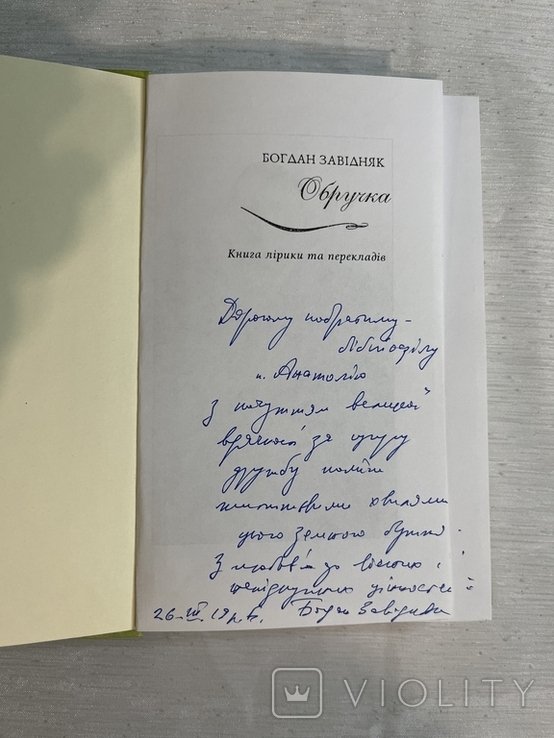 БОГДАН ЗАВІДНЯК
Обручка
Книга лірики та перекладів
Дорогому побратиму –
бібліофілу
п. Анатолію
З почуттям великої
вдячності за щиру
дружбу поміж
хвилями
цього земного буття.
З любов'ю до вічних і
цінностей
26.VII.19 р.Б. Богдан Завідняк
VIOLITY